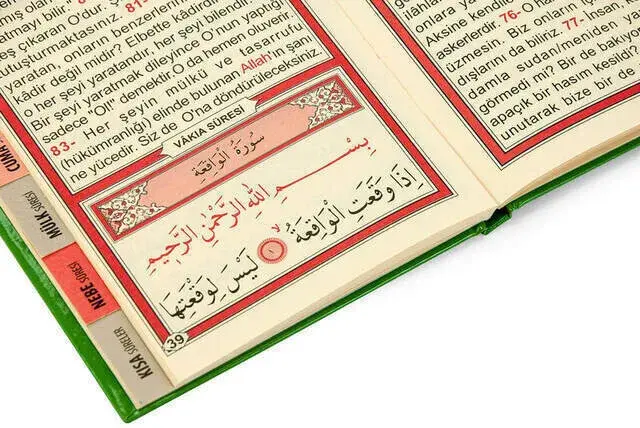 mış olan
atmayı bilir."
eş çıkaran O'dur. İş
tuşturmaktasınız. 8
yaratan, onların benzerlerini
kâdir değil midir? Elbette kâdirdir
O her şeyi yaratandır, her şeyi bilendir.
Bir şeyi yaratmak dileyince O'nun yaptığı
sadece 'Ol!' demektir. O da hemen oluverir.
83- Her şeyin mülkü ve tasarrufu
(hükümranlığı) elinde bulunan Allah'ın şanı
ne yücedir. Siz de O'na döndürüleceksiniz.
VÂKIA SÛRESİ
سُورَةُ الْوَاقِعَةِ
بِسْمِ اللّٰهِ الرَّحْمٰنِ الرَّحِيمِ
اِذَا وَقَعَتِ الْوَاقِعَةُ
لَا ١ لَيْسَ لِوَقْعَتِهَا
39
CUMA
MÜLK SÛRESİ
NEBE SÛRESİ
KISA SÛRELER
ilâhlar
onlara ya
Aksine kendil
askerlerdir. 76- O ha
üzmesin. Biz onların giz
dışlarını da biliriz. 77- İnsan,
damla sudan/meniden yar
görmedi mi? Bir de bakıyor
apaçık bir hasım kesildi?
unutarak bize bir de